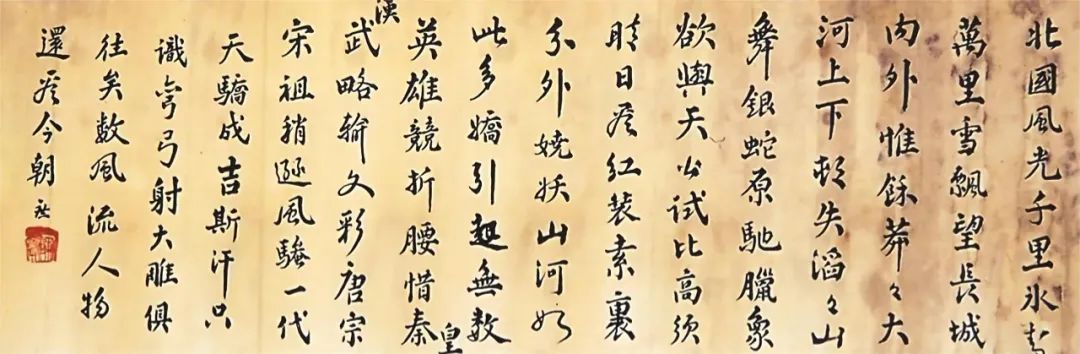 北國風光千里氷封
萬里雪飄望長城
内外惟餘莽々大
河上下頓失滔々山
舞銀蛇原馳臘象
欲與天公試比高須
晴日看红装素裹
分外娆妖山河如
此多嬌引起無数
英雄競折腰惜秦皇
漢武略輸文彩唐宗
宋祖稍遜風騷一代
天驕成吉斯汗只
識彎弓射大雕俱
往矣数風流人物
還看今朝